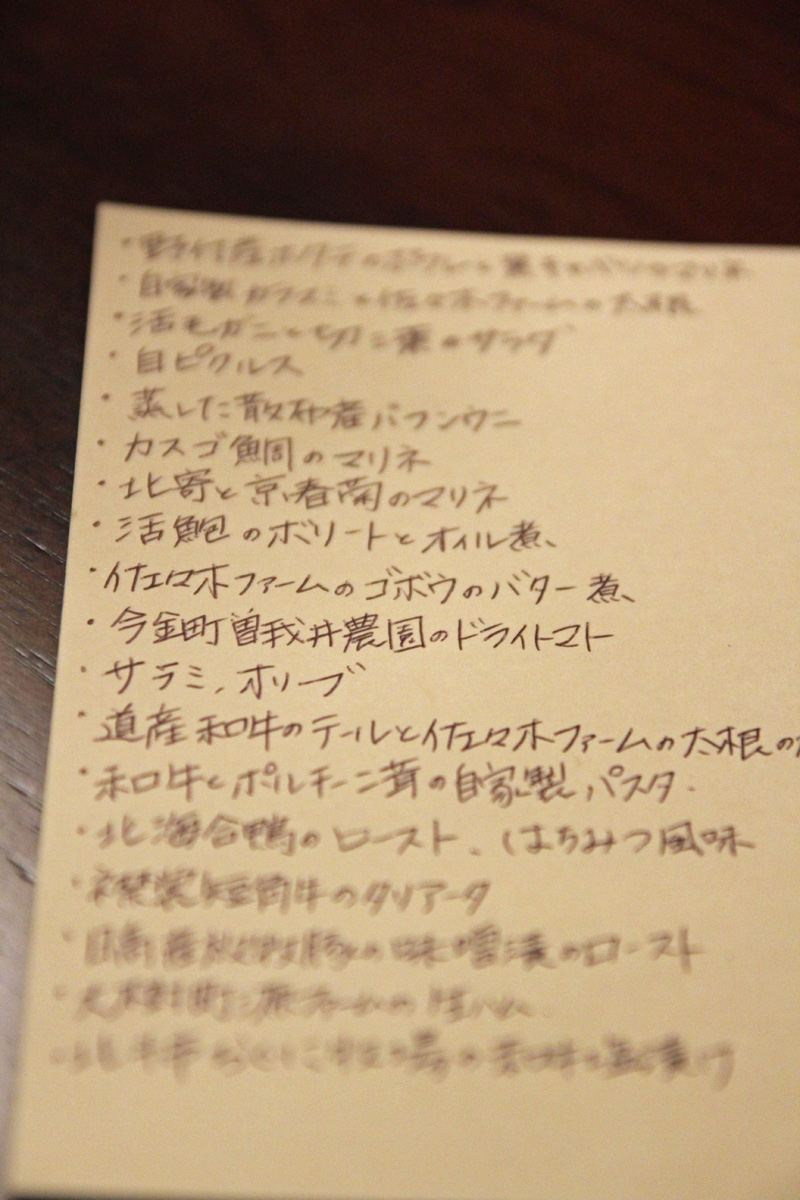 ・自家製カラスミと佐々木ファームの大根
・活毛ガニと のサラダ
・自ピクルス
・蒸した散布産バフンウニ
・カスゴ鯛のマリネ
・北寄と京春菊のマリネ
・活鮑のボリートとオイル煮、
・佐々木ファームのゴボウのバター煮、
・今金町曽我井農園のドライトマト
・サラミ、オリーブ
・道産和牛のテールと佐々木ファームの大根の
・和牛とポルチーニ茸の自家製パスタ.
・北海合鴨のロースト、はちみつ風味
・短角牛のタリアータ
・ の味噌漬のロースト
・ ファームの生ハム